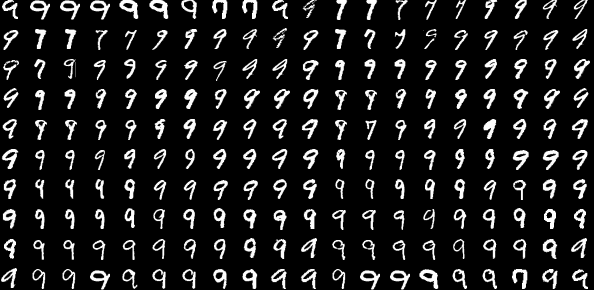 9 9 9 9 9 9 9 7 7 9 9 7 7 7 7 7 9 9 9 9
9 7 7 7 7 9 9 9 9 9 9 7 7 7 9 9 9 9 9 9
9 7 9 9 9 9 9 9 9 9 9 9 9 9 9 9 9 9 9 9
9 9 9 9 9 9 9 9 9 9 9 8 8 9 9 9 9 9 9 9
9 8 8 9 9 9 9 9 9 9 9 8 7 9 9 9 9 9 9 9
9 9 9 9 9 9 9 9 9 9 9 9 9 9 9 9 9 9 9 9
9 4 4 4 9 9 9 9 9 9 9 9 9 9 9 9 9 9 9 9
9 9 9 9 9 9 9 9 9 9 9 9 9 9 9 9 9 9 9 9
9 9 9 9 9 9 9 9 9 9 9 9 9 9 9 9 9 9 9 9
9 9 9 9 9 9 9 9 9 9 9 9 9 9 9 9 9 7 9 9